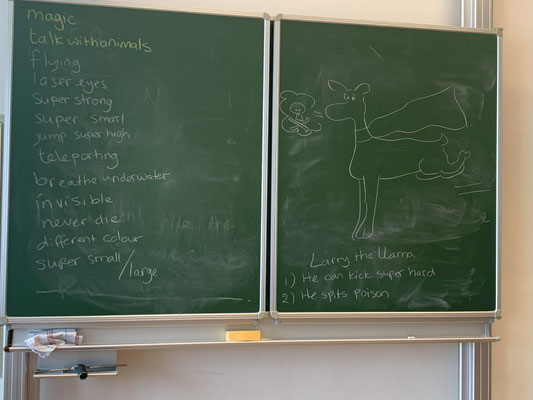 magic
talk with animals
flying
laser eyes
Super strong
super smart
jump super high
teleporting
breathe underwater
invisible
never die
different colour
super small/large
Larry the Llama
1) He can kick super hard
2) He spits poison